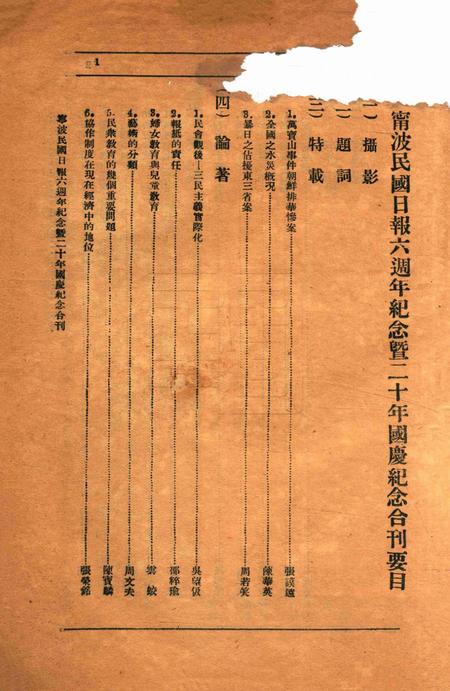 甯波民國日報六週年紀念暨二十年國慶紀念合刊要目
(一)攝影
(二)題詞
(三)特載
1.萬寶山事件朝鮮排華慘案
2.全國之水災概况 陳華英
3.暴日之佔據東三省案 周若萍
(四)論著
1.民會觀後—三民主義實際化
2.報紙的責任
3.婦女教育與兒童教育 雲蛟
4.藝術的分類 周文夫
5.民衆教育的幾個重要問題 陳寶麟
6.協作制度在現在經濟中的地位
甯波民國日報六週年紀念暨二十年國慶紀念合刊
1